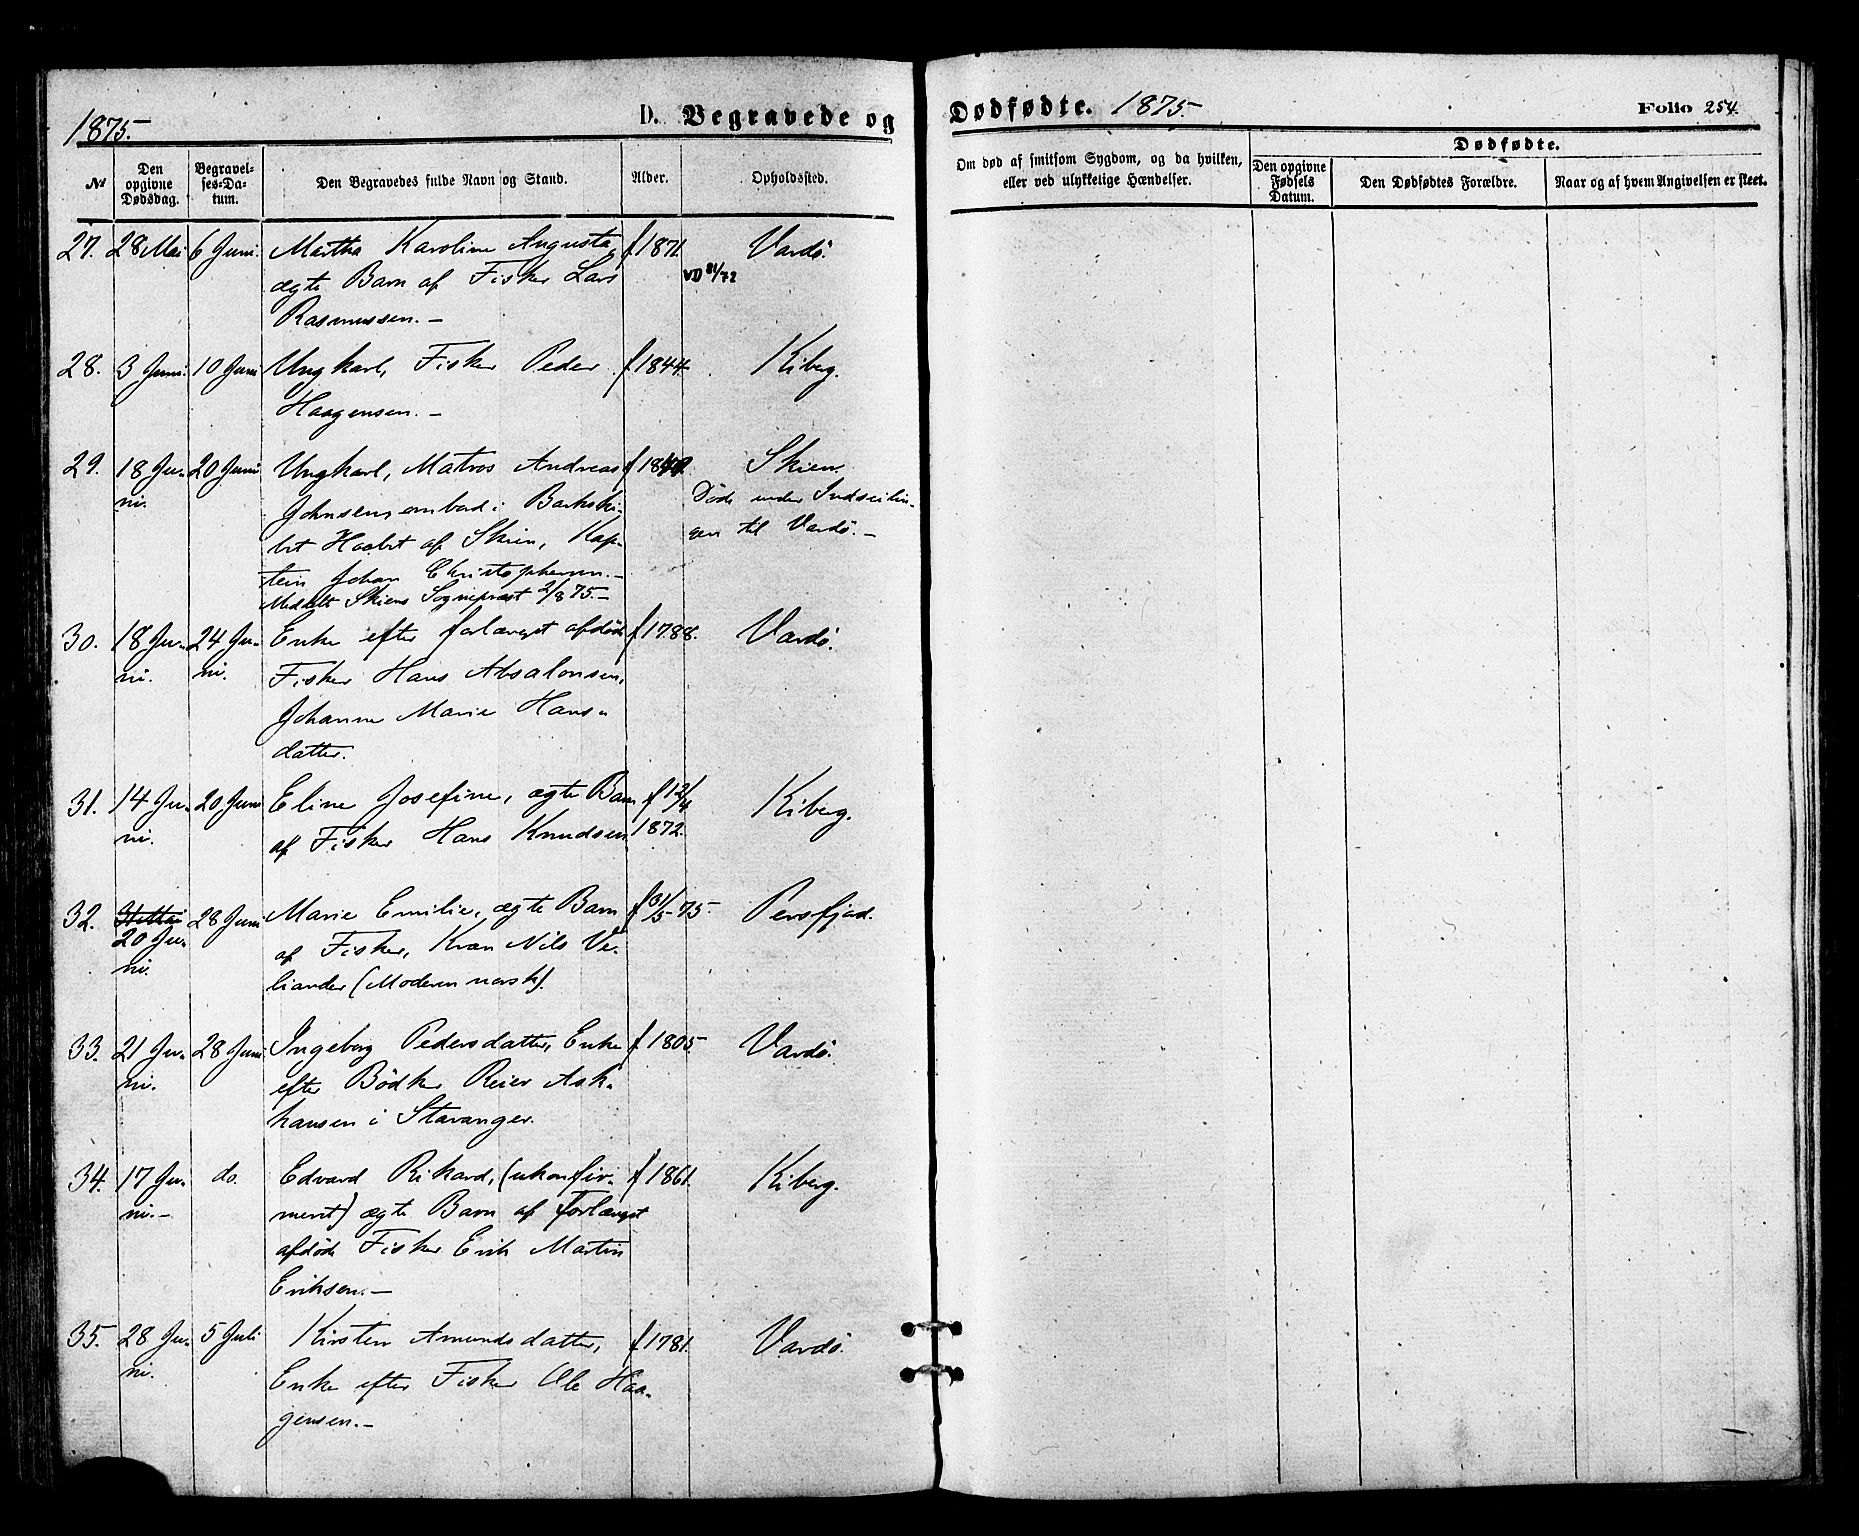 1875.
D. Begravede og
№
Den opgivne Dødsdag.
Begravelses-Datum.
Den Begravedes fulde Navn og Stand.
Alder.
Opholdssted.
27. 28 Mai 6 Juni. Martha Karoline Augusta, f 1871. Vardö.
ægte Barn af Fisker Lars VD 81/72
Rasmussen. –
28. 3 Juni. 10 Juni Ungkarl, Fisker Peder f 1844. Kiberg.
Haagensen. –
29. 18 Ju- 20 Juni Ungkarl, Matros Andreas Skien.
ni. Johnsen, ombord i Barkski- Döde under Indseilin-
bet Haabet af Skien, Kap- gen til Vardö. –
tein Johan Christophersen. –
Meddelt Skiens Sognepræst 2/8 75. –
30. 18 Ju- 24 Ju- Enke efter forlængst afdöde f 1788. Vardö.
ni. ni. Fisker Hans Absalonsen,
Johanne Marie Hans-
datter.
31. 14 Ju- 20 Juni Eline Josefine, ægte Barn f 12/4 Kiberg.
ni. af Fisker Hans Knudsen 1872.
32. 31te Mai 28 Juni Marie Emilie, ægte Barn f 31/5 75. Persfjord.
20 Ju- af Fisker, Kvæn Nils Ve-
ni. liander (Moderen norsk).
33. 21 Ju- 28 Juni Ingeborg Pedersdatter, Enke f 1805. Vardö.
ni. efter Bödker Reier Ask-
hausen i Stavanger.
34. 17 Ju- do. Edvard Rikard, (ukonfir- f 1861. Kiberg.
ni. – meret) ægte Barn af forlængst
afdöde Fisker Erik Martin
Eriksen. –
35. 28 Ju- 5 Juli Kirsten Amundsdatter, f 1781. Vardö.
ni. Enke efter Fisker Ole Haa-
gensen. –
Dødfødte. 1875.
Folio 254.
Om død af smitsom Sygdom, og da hvilken,
eller ved ulykkelige Hændelser.
Dødfødte.
Den opgivne Fødsels Datum.
Den Dødfødtes Forældre.
Naar og af hvem Angivelsen er skeet.